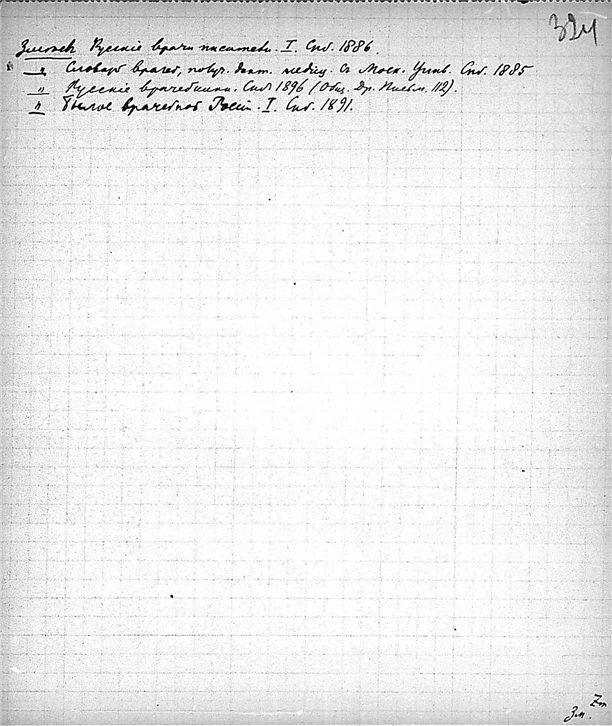 324
Змеевъ Русскіе врачи писатели. I. Спб. 1886.
" Словарь врачей, получ. докт. медиц. Моск. Унив. Спб. 1885
" Русскіе врачебники. Спб 1896 (Общ. Др. Письм. 112).
" Былое врачебной Россіи. I. Спб. 1891.
Zm
Зм.